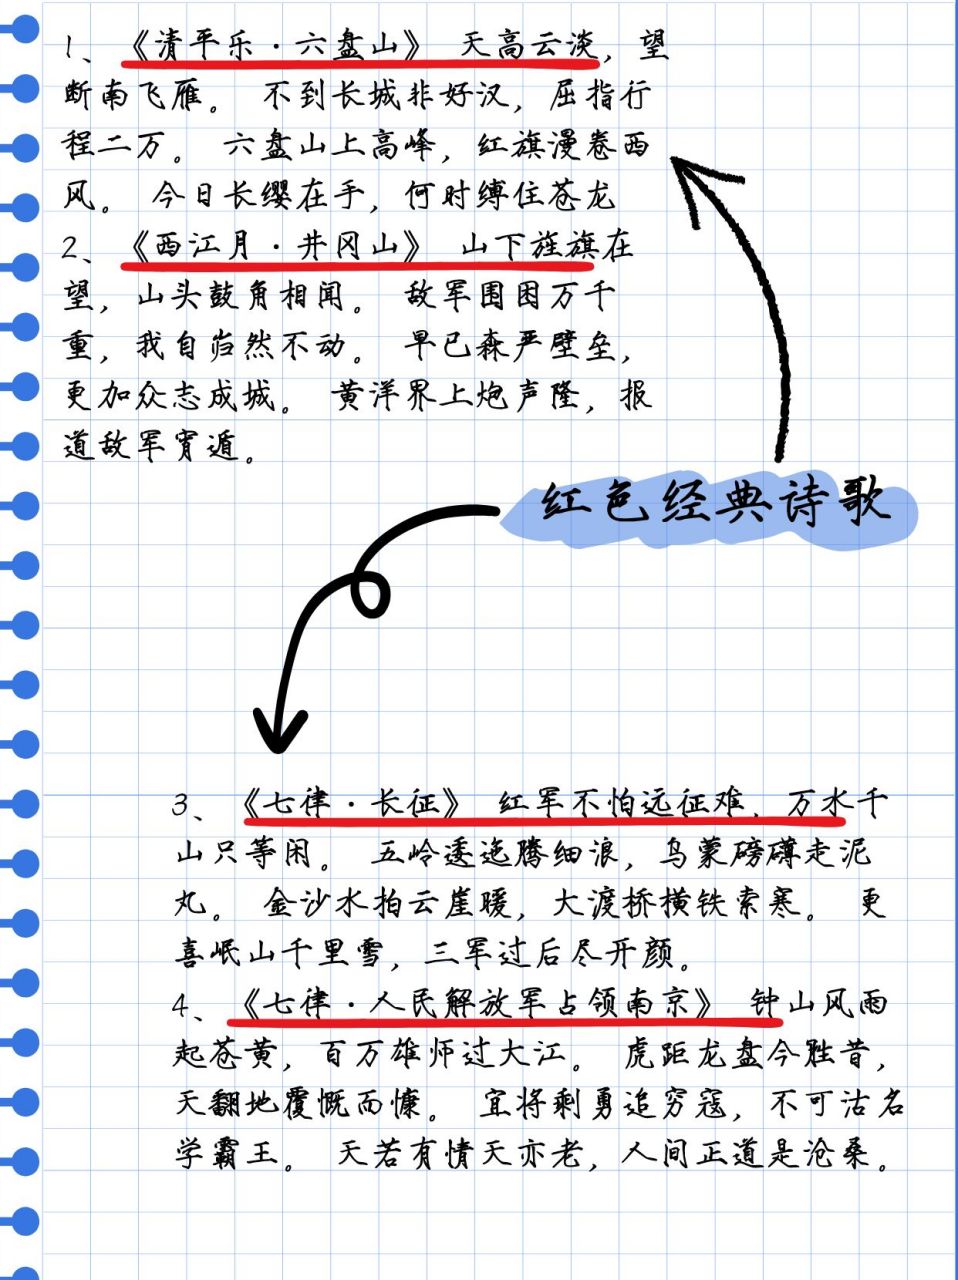 1、《清平乐·六盘山》 天高云淡，望
断南飞雁。 不到长城非好汉，屈指行
程二万。 六盘山上高峰，红旗漫卷西
风。 今日长缨在手，何时缚住苍龙
2、《西江月·井冈山》 山下旌旗在
望，山头鼓角相闻。 敌军围困万千
重，我自岿然不动。 早已森严壁垒，
更加众志成城。 黄洋界上炮声隆，报
道敌军宵遁。
红色经典诗歌
3、《七律·长征》 红军不怕远征难，万水千
山只等闲。 五岭逶迤腾细浪，乌蒙磅礴走泥
丸。 金沙水拍云崖暖，大渡桥横铁索寒。 更
喜岷山千里雪，三军过后尽开颜。
4、《七律·人民解放军占领南京》 钟山风雨
起苍黄，百万雄师过大江。 虎距龙盘今胜昔，
天翻地覆慨而慷。 宜将剩勇追穷寇，不可沽名
学霸王。 天若有情天亦老，人间正道是沧桑。